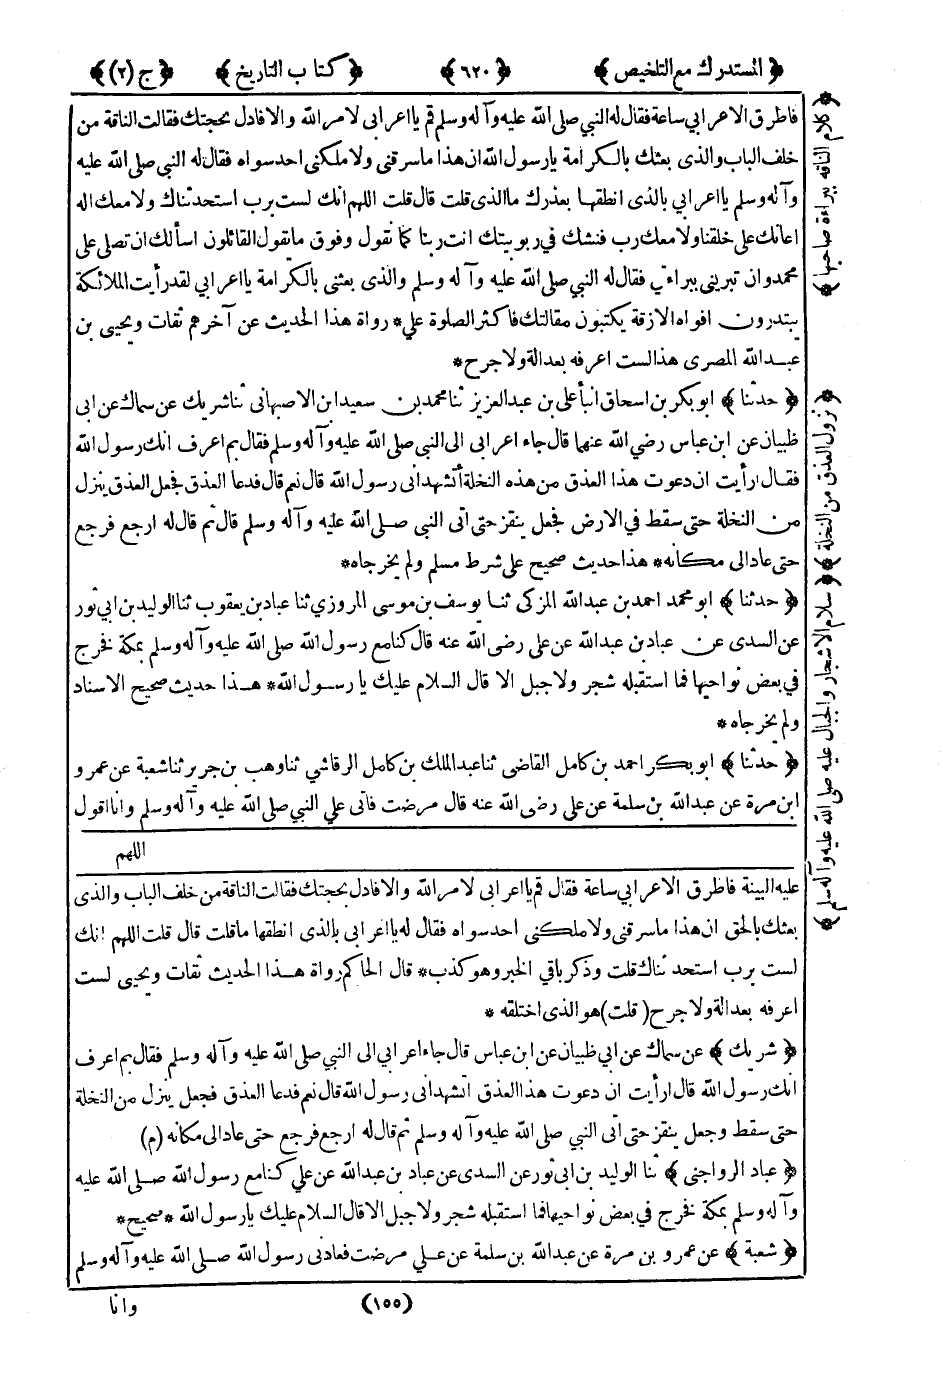 ﴿ المستدرك مع التلخيص ﴾ ﴿ ٦٢٠ ﴾ ﴿ كتاب التاريخ ﴾ ﴿ ج (٢) ﴾
فاطرق الاعرابي ساعة فقال له النبي صلى الله عليه وآله وسلم قم يا اعرابى لامر الله والا فادل بحجتك فقالت الناقة من
خلف الباب والذى بعثك بالكرامة يا رسول الله ان هذا ما سرقنى ولا ملكنى احد سواه فقال له النبي صلى الله عليه
وآله وسلم يا اعرابي بالذى انطقها بعذرك ما الذى قلت قال قلت اللهم انك لست برب استحدثناك ولا معك اله
اعانك على خلقنا ولا معك رب فنشك في ربوبيتك انت ربنا كما نقول وفوق ما نقول القائلون اسألك ان تصلى على
محمد وان تبريني ببراءتي فقال له النبي صلى الله عليه وآله وسلم والذى بعثنى بالكرامة يا اعرابي لقد رأيت الملائكة
يبتدرون افواه الازقة يكتبون مقالتك فاكثر الصلوة علي * رواة هذا الحديث عن آخرهم ثقات ويحيى بن
عبد الله المصرى هذا لست اعرفه بعدالة ولا جرح *
﴿ حدثنا ﴾ ابو بكر بن اسحاق انبأ على بن عبد العزيز ثنا محمد بن سعيد ابن الاصبهانى ثنا شريك عن سماك عن ابى
ظبيان عن ابن عباس رضي الله عنهما قال جاء اعرابى الى النبي صلى الله عليه وآله وسلم فقال بم اعرف انك رسول الله
فقال ارأيت ان دعوت هذا العذق من هذه النخلة أتشهد انى رسول الله قال نعم قال فدعا العذق فجعل العذق ينزل
من النخلة حتى سقط في الارض فجعل ينقز حتى اتى النبي صلى الله عليه وآله وسلم قال ثم قال له ارجع فرجع
حتى عاد الى مكانه * هذا حديث صحيح على شرط مسلم ولم يخرجاه *
﴿ حدثنا ﴾ ابو محمد احمد بن عبد الله المزكى ثنا يوسف بن موسى المروزي ثنا عباد بن يعقوب ثنا الوليد بن ابى ثور
عن السدى عن عباد بن عبد الله عن على رضى الله عنه قال كنا مع رسول الله صلى الله عليه وآله وسلم بمكة فخرج
في بعض نواحيها فما استقبله شجر ولا جبل الا قال السلام عليك يا رسول الله * هذا حديث صحيح الاسناد
ولم يخرجاه *
﴿ حدثنا ﴾ ابو بكر احمد بن كامل القاضى ثنا عبد الملك بن كامل الرقاشي ثنا وهب بن جرير ثنا شعبة عن عمرو
ابن مرة عن عبد الله بن سلمة عن على رضى الله عنه قال مرضت فاتى علي النبي صلى الله عليه وآله وسلم وانا اقول
اللهم
عليه البينة فاطرق الاعرابي ساعة فقال قم يا اعرابى لامر الله والا فادل بحجتك فقالت الناقة من خلف الباب والذى
بعثك بالحق ان هذا ما سرقنى ولا ملكنى احد سواه فقال له يا اعرابى بالذى انطقها ما قلت قال قلت اللهم انك
لست برب استحدثناك قلت وذكر باقي الخبر وهو كذب * قال الحاكم رواة هذا الحديث ثقات ويحيى لست
اعرفه بعدالة ولا جرح (قلت) هو الذى اختلقه *
﴿ شريك ﴾ عن سماك عن ابي ظبيان عن ابن عباس قال جاء اعرابى الى النبي صلى الله عليه وآله وسلم فقال بم اعرف
انك رسول الله قال ارأيت ان دعوت هذا العذق اتشهد انى رسول الله قال نعم فدعا العذق فجعل ينزل من النخلة
حتى سقط وجعل ينقز حتى اتى النبي صلى الله عليه وآله وسلم ثم قال له ارجع فرجع حتى عاد الى مكانه (م)
﴿ عباد الرواجنى ﴾ ثنا الوليد بن ابى ثور عن السدى عن عباد بن عبد الله عن علي كنا مع رسول الله صلى الله عليه
وآله وسلم بمكة فخرج في بعض نواحيها فما استقبله شجر ولا جبل الا قال السلام عليك يا رسول الله * صحيح *
﴿ شعبة ﴾ عن عمرو بن مرة عن عبد الله بن سلمة عن علي مرضت فعادنى رسول الله صلى الله عليه وآله وسلم
(١٥٥) وانا
﴿ كلام الناقة ببراءة صاحبها ﴾
﴿ نزول العذق من النخلة ﴾
﴿ سلام الاشجار والجبال عليه صلى الله عليه وآله وسلم ﴾